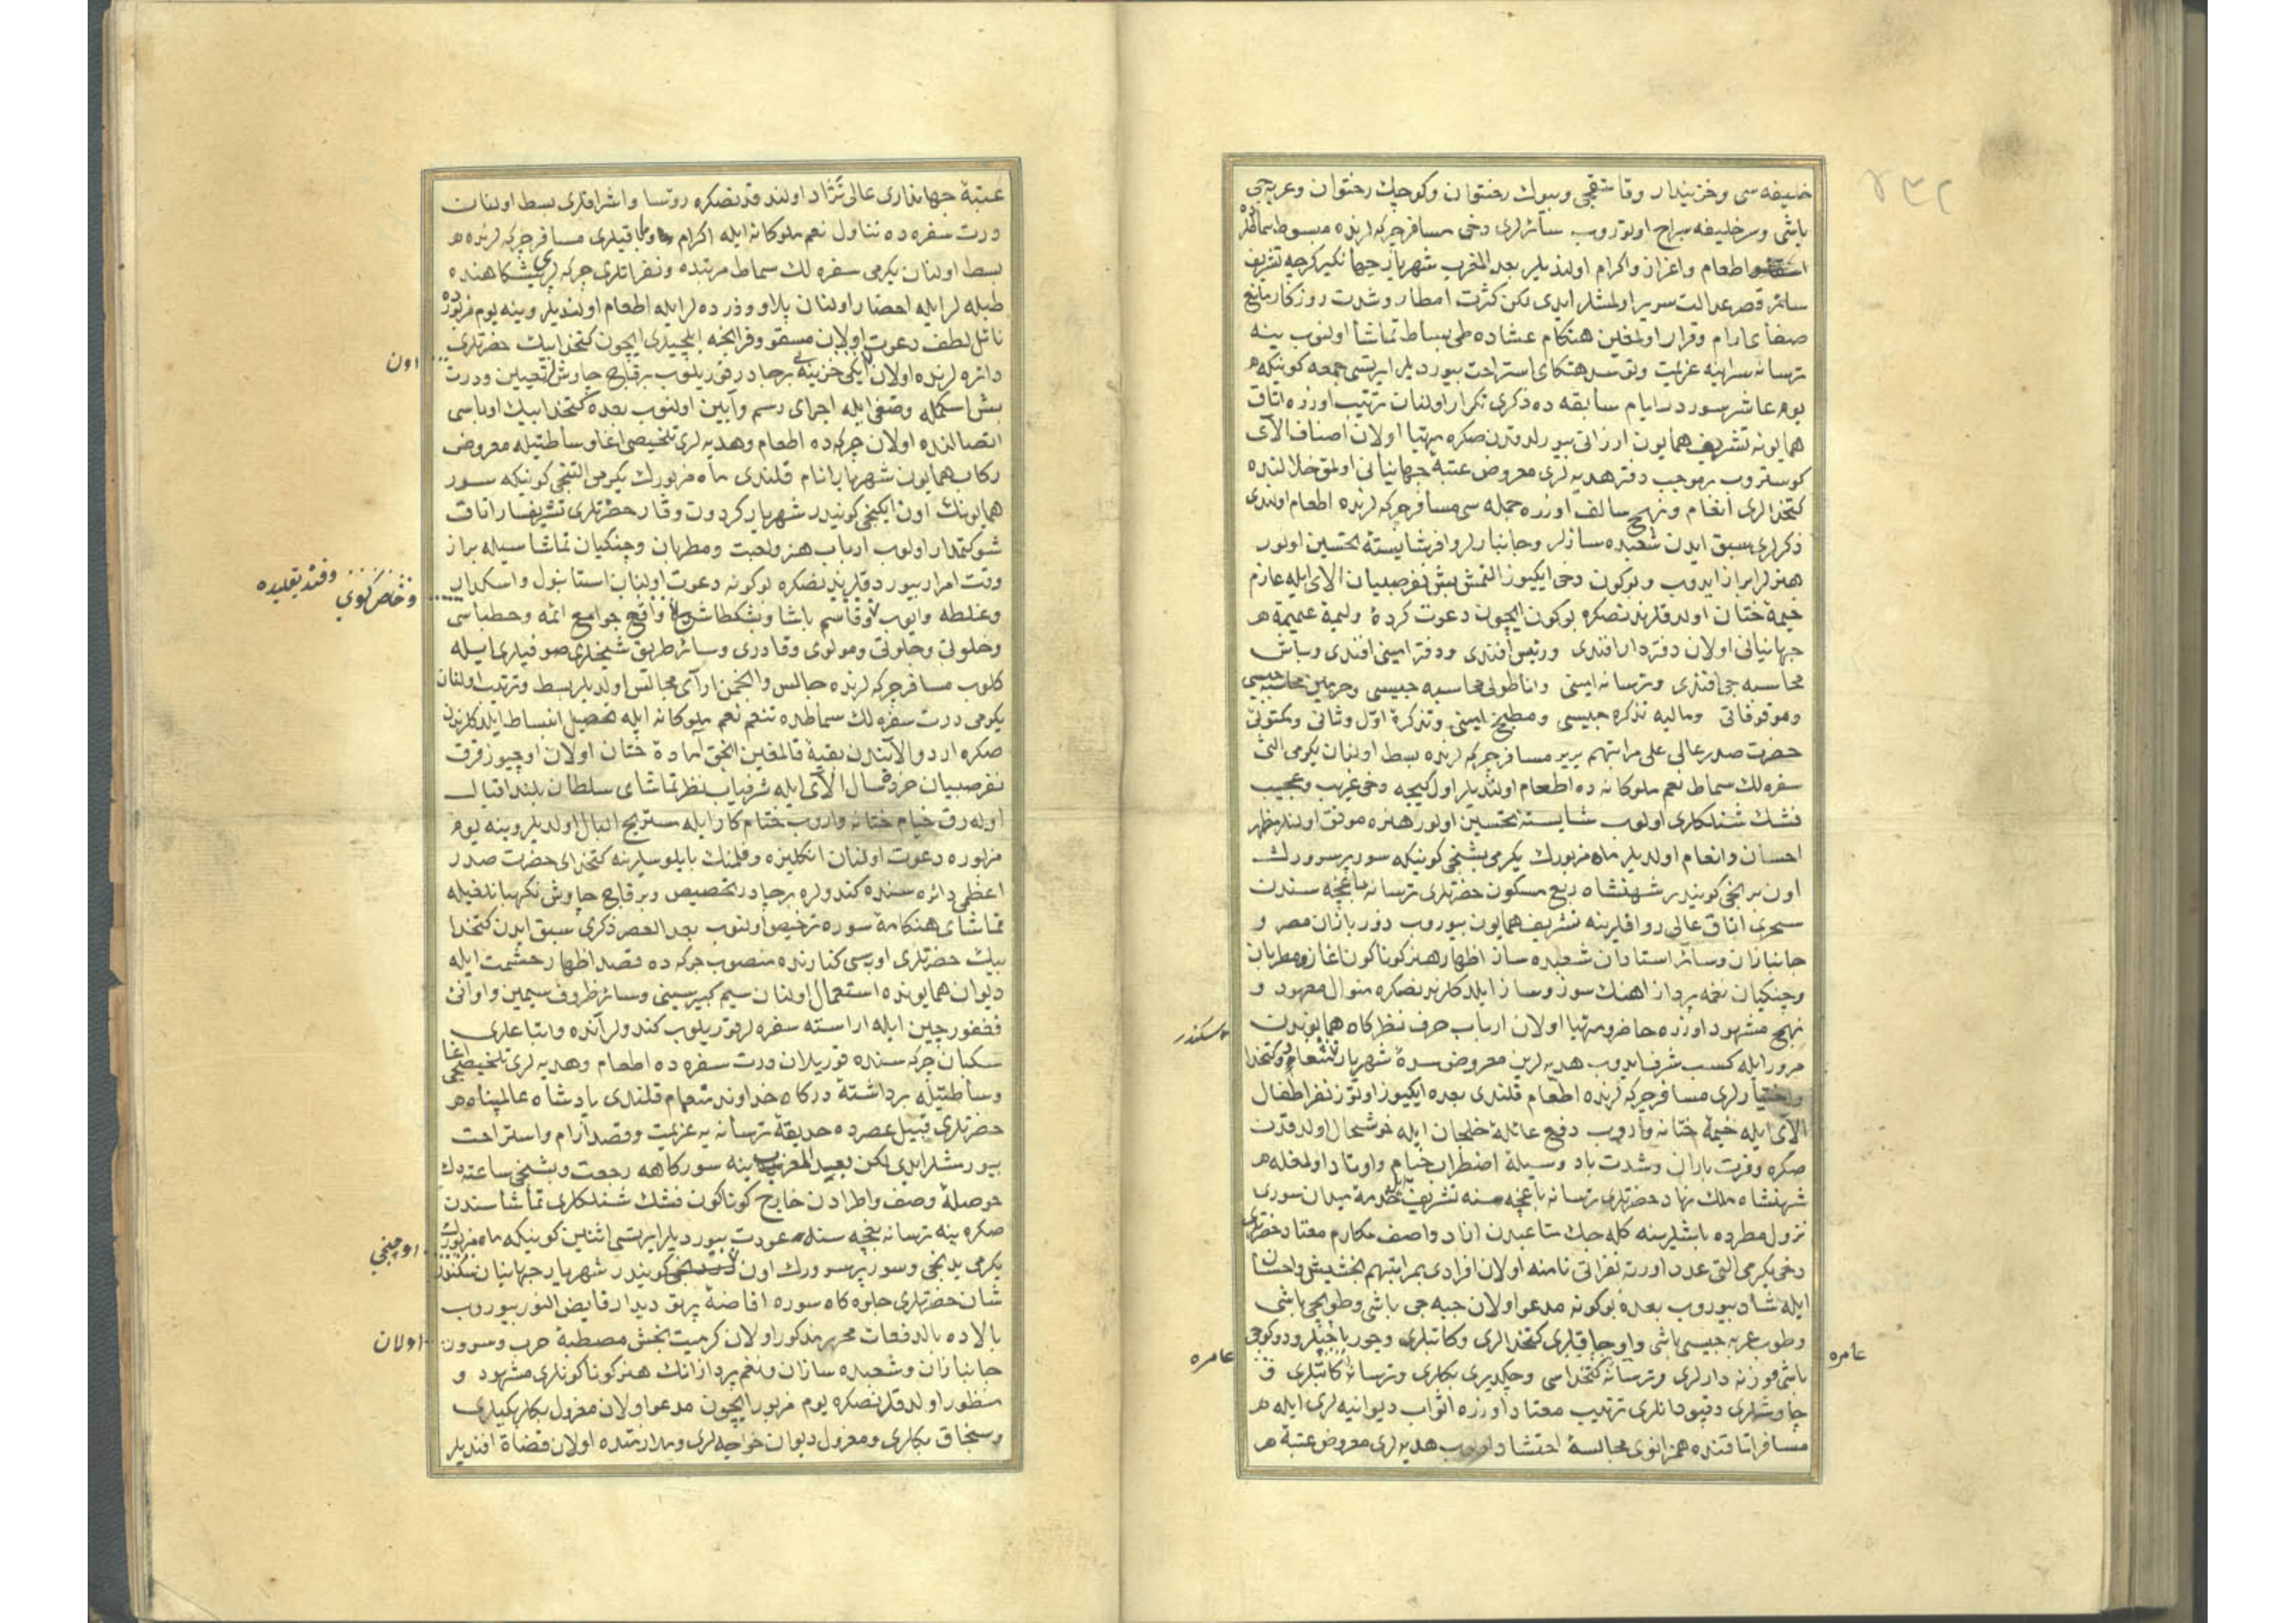 خلیفه سی و خزینه دار و قاشقجی و بیوك رختوان و كوچك رختوان و عربه جی
باشی و سر خلیفه سراج اوتوروب سائرلری دخی مسافر چركه لرنده مبسوط
اطعام و اعزاز و اكرام اولندیلر بعد المغرب شهریار جهانكیر كرچه تشریف
قصر عدالت سریر اولمشلر ایدی لكن كثرت امطار و شدت روزكار مانع
آرام و قرار اولمغین هنكام عشاده طی بساط تماشا اولنوب ینه
ترسانه سراینه عزیمت و استراحت بیوردیلر ایرتسی جمعه كونیكه
یوم عاشر سور در ایام سابقه ده ذكری تكرار اولنان ترتیب اوزره اتاق
همایونه تشریف همایون ارزانی بیورلدقدن صكره مهیا اولان اصناف آلای
كوستروب بر موجب دفتر هدیه لری معروض عتبۀ جهانبانی اولمق خلالنده
كتخدالری انعام و نهج سالف اوزره جمله سی مسافر چركه لرنده اطعام اولندی
ذكرلری سبق ایدن شعبده سازلر و جانبازلر وافر شایستۀ تحسین اولور
هنرلر ابراز ایدوب و بوكون دخی ایكیوز التمش بش نفر صبیان آلای ایله عازم
خیمۀ ختان اولدقلرندنصكره بوكون ایچون دعوت كردۀ ولیمۀ عمیمۀ
جهانبانی اولان دفتردار افندی و رئیس افندی و دفتر امینی افندی و باش
محاسبه جی افندی و ترسانه امینی و اناطولی محاسبه جیسی و حرمین محاسبه جیسی
و موقوفاتی و مالیه تذكره جیسی و مطبخ امینی و تذكرۀ اول و ثانی و مكتوبی
حضرت صدر عالی علی مراتبهم بربر مسافر چركه لرنده بسط اولنان یكرمی التی
سفره لك سماط نعم ملوكانه ده اطعام اولندیلر اول كیجه دخی غریب و عجیب
فشنك شنلكلری اولوب شایستۀ تحسین اولور هنره موفق اولنلر مظهر
احسان و انعام اولدیلر ماه مزبورك یكرمی بشنجی كونیكه سور پر سرورك
اون برنجی كونیدر شهنشاه ربع مسكون حضرتلری ترسانه باغچه سندن
سحری اتاق عالی رواقلرینه تشریف همایون بیوروب زوربازان مصر و
جانبازان و سائر استادان شعبده ساز اظهار هنر كوناكون آغاز و مطربان
و چنكیان نغمه پرداز آهنك سوز و ساز ایلدكلرندنصكره منوال معهود و
نهج مشهود اوزره حاضر و مهیا اولان ارباب حرف نظركاه همایوندن
مرور ایله كسب شرف ایدوب هدیه لرین معروض سدۀ شهریار و كتخدا
و اختیارلری مسافر چركه لرنده اطعام قلندی بعده ایكیوز اوتوز نفر اطفال
آلای ایله خیمۀ ختانه واروب دفع عائلۀ خلجان ایله خوشحال اولدقدن
صكره وفرت باران و شدت باد وسیلۀ اضطراب خیام و اوتاد اولمغله
شهنشاه ملك نهاد حضرتلری ترسانه باغچه سنه تشریف میدان سوری
نزول مطرده باشلرینه كله جك متاعبدن آزاد و اصف مكارم معتاد حضرتلری
دخی یكرمی التی عدد اورته نفراتی نامنه اولان افرادی بمراتبهم بخشیش و احسان
ایله شاد بیوروب بعده بوكونه مدعو اولان جبه جی باشی و طوپجی باشی
و طوپ عربه جیسی باشی و اوجاقلری كتخدالری و كاتبلری
باشی و وزنه دارلری و ترسانه كتخداسی و چكدیری بكلری و ترسانه كاتبلری
چاوشلری و قپودانلری ترتیب معتاد اوزره اثواب دیوانیه لری ایله
مسافر اتاقنده همزانوی مجالسۀ احتشاد اولوب هدیه لری معروض عتبۀ
سكندر
عامره
عامره
عتبۀ جهانداری عالی نژاد اولندقدنصكره رؤسا و اشرافلری بسط اولنان
درت سفره ده تناول نعم ملوكانه ایله اكرام و باقیلری مسافر چركه لرنده
بسط اولنان یكرمی سفره لك سماط مرتبده و نفراتلری چركه لر پیشكاهنده
طبله لر ایله احضار اولنان پلاو و زرده لر ایله اطعام اولندیلر و ینه یوم مزبورده
نائل لطف دعوت اولان مسقو و فرانچه ایلچیلری ایچون كتخدا بیك حضرتلری
دائره لرنده اولان ایكی خزینه بر چادر قوریلوب بر قاچ چاوش تعیین و درت
بش اسكمله وضعی ایله اجرای رسم و آیین اولنوب بعده كتخدا بیك اوباسی
اتصالنده اولان چركه ده اطعام و هدیه لری تلخیصی آغا وساطتیله معروض
ركاب همایون شهریار انام قلندی ماه مزبورك یكرمی التنجی كونیكه سور
همایونك اون ایكنجی كونیدر شهریار كردون وقار حضرتلری تشریفساز اتاق
شوكتمدار اولوب ارباب هنر و لعبت و مطربان و چنكیان تماشاسیله براز
وقت امرار بیوردقلرندنصكره بوكونه دعوت اولنان استانبول و اسكدار
و غلطه و ایوب و قاسم پاشا و بشكطاش واقع جوامع ائمه و خطباسی
و خلوتی و جلوتی و مولوی و قادری و سائر طریق شیخلری صوفیلری ایله
كلوب مسافر چركه لرنده جالس و انجمن آرای مجالس اولدیلر بسط و ترتیب اولنان
یكرمی درت سفره لك سماطده تنعم نعم ملوكانه ایله تحصیل انبساط ایلدكلرندن
صكره اردو آلایندن بقیه قالمغین انجق آمادۀ ختان اولان اوچیوز قرق
نفر صبیان آلای ایله شرفیاب نظر تماشای سلطان بلند اقبال
اوله رق خیام ختانه واروب ختام كار ایله مستریح البال اولدیلر و ینه یوم
مزبوره دعوت اولنان انكلیزه و فلمنك بایلوسلرینه كتخدای حضرت صدر
اعظمی دائره سنده كندولره بر چادر تخصیص و بر قاچ چاوش نكهبانلغیله
تماشای هنكامۀ سوره ترخیص اولنوب بعد العصر ذكری سبق ایدن كتخدا
بیك حضرتلری اوبه سی كنارنده منصوب چركه ده قصد اظهار حشمت ایله
دیوان همایونده استعمال اولنان سیم كبیر سینی و سائر ظروف سیمین و اوانئ
فغفور چین ایله آراسته سفره لر قوریلوب كندولر آنده و اتباعلری
سكبان چركه سنده قوریلان درت سفره ده اطعام و هدیه لری تلخیصجی آغا
وساطتیله برداشتۀ دركاه خداوند قلندی پادشاه عالمپناه
حضرتلری قبیل عصرده حدیقۀ ترسانه یه عزیمت و قصد آرام و استراحت
بیورمشلر ایدی لكن بعید المغرب ینه سوركاهه رجعت و بشنجی ساعته دك
حوصلۀ وصف و اطرادن خارج كوناكون فشنك شنلكلری تماشاسندن
صكره ینه ترسانه باغچه سنه عودت بیوردیلر ایرتسی اثنین كونیكه ماه مزبورك
یكرمی یدنجی و سور پر سرورك اون كونیدر شهریار جهانیان
شان حضرتلری جلوه كاه سوره افاضۀ پرتو دیدار فایض النور بیوروب
بالاده بالدفعات محرر مذكور اولان كرمیت بخش مصطبۀ حرب و سرور
جانبازان و شعبده سازان و نغم پردازانك هنر كوناكونلری مشهود و
منظور اولدقدنصكره یوم مزبور ایچون مدعو اولان معزول بكلربكیلری
و سنجاق بكلری و معزول دیوان خواجه لری و ملازمتده اولان قضاة افندیلر
اون
و خاصكوی
اوچنجی
اولان